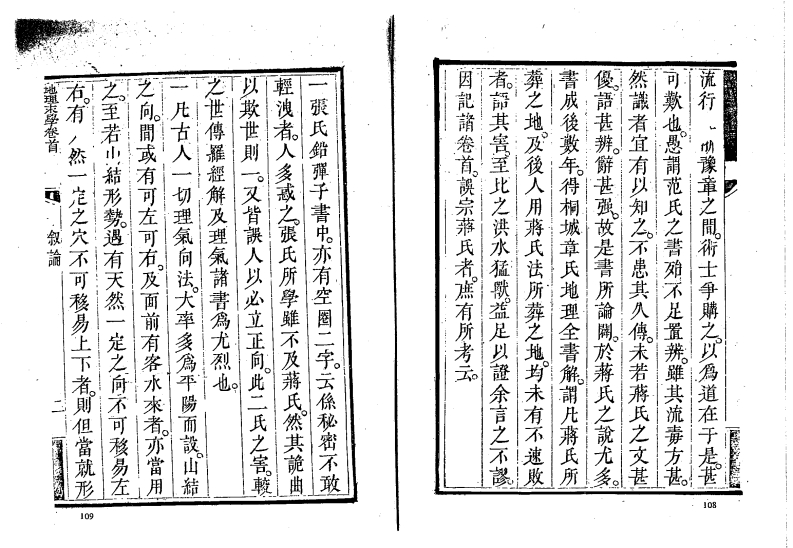 流行　豫章之間。術士爭購之。以爲道在于是。甚
可歎也。愚謂范氏之書殆不足置辨。雖其流毒方甚。
然識者宜有以知之。不患其久傳。未若蔣氏之文甚
優。語甚辨。辭甚强。故是書所論闢。於蔣氏之說尤多。
書成後數年。得桐城章氏地理全書解。謂凡蔣氏所
葬之地。及後人用蔣氏法所葬之地。均未有不速敗
者。語其害。至比之洪水猛獸。益足以證余言之不謬。
因記諸卷首。誤宗蔣氏者。庶有所考云。
108
一張氏鉛彈子書中。亦有空圈二字。云係秘密不敢
輕洩者。人多惑之。張氏所學雖不及蔣氏。然其詭曲
以欺世則一。又皆誤人以必立正向。此二氏之害。較
之世傳羅經解及理氣諸書爲尤烈也。
一凡古人一切理氣向法。大率多爲平陽而設。山結
之向。間或有可左可右。及面前有客水來者。亦當用
之。至若山結形勢。遇有天然一定之向不可移易左
右。有　然一定之穴不可移易上下者。則但當就形
地理末學卷首
叙論
二
109